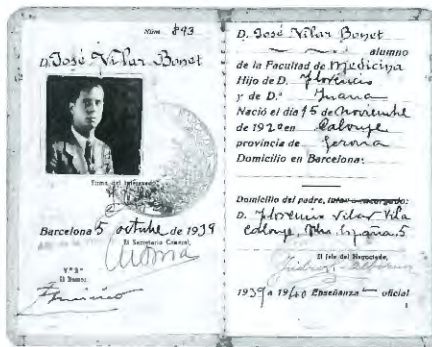 Núm 893
D. José Vilar Bonet
Firma del interesado,
Barcelona 5 octubre de 1939
El Secretario General,
Vº Bº
El Decano,
D. José Vilar Bonet
alumno
de la Facultad de Medicina
Hijo de D. Florencio
y de D.ª Juana
Nació el día 15 de Noviembre
de 1920 en Calonge
provincia de Gerona
Domicilio en Barcelona:
Domicilio del padre, tutor o encargado:
D. Florencio Vilar Vila
Calonge, Pza. España, 5
El Jefe del Negociado,
1939 a 1940 Enseñanza oficial